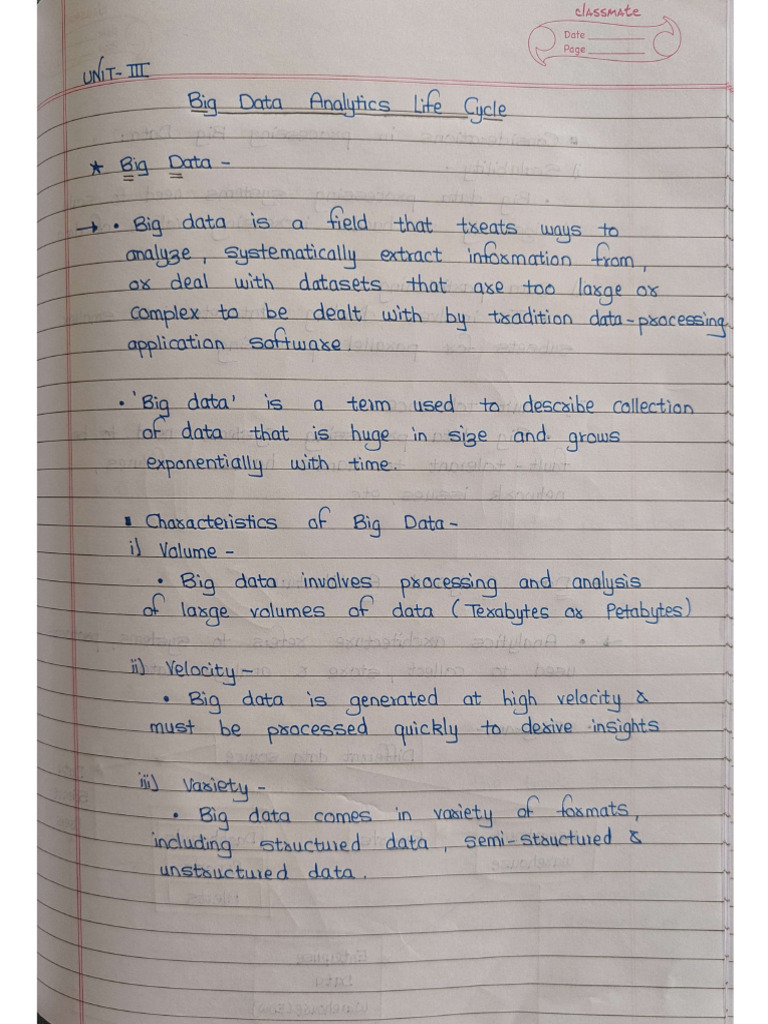 classmate
Date
Page
UNIT-III
Big Data Analytics Life Cycle
* Big Data -
→ • Big data is a field that treats ways to
analyze, systematically extract information from,
or deal with datasets that are too large or
complex to be dealt with by tradition data-processing
application software.
• 'Big data' is a term used to describe collection
of data that is huge in size and grows
exponentially with time.
▪ Characteristics of Big Data -
i) Volume -
• Big data involves processing and analysis
of large volumes of data (Terabytes or Petabytes)
ii) Velocity -
• Big data is generated at high velocity &
must be processed quickly to derive insights
iii) Variety -
• Big data comes in variety of formats,
including structured data, semi-structured &
unstructured data.